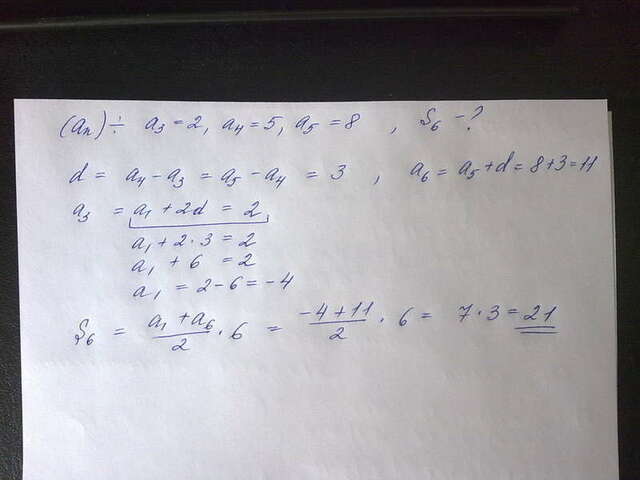 (aₙ)÷ a₃ = 2, a₄ = 5, a₅ = 8 , S₆ - ?
d = a₄ - a₃ = a₅ - a₄ = 3 , a₆ = a₅ + d = 8 + 3 = 11
a₃ = a₁ + 2d = 2
a₁ + 2 · 3 = 2
a₁ + 6 = 2
a₁ = 2 - 6 = -4
S₆ = (a₁ + a₆)/2 · 6 = (-4 + 11)/2 · 6 = 7 · 3 = 21